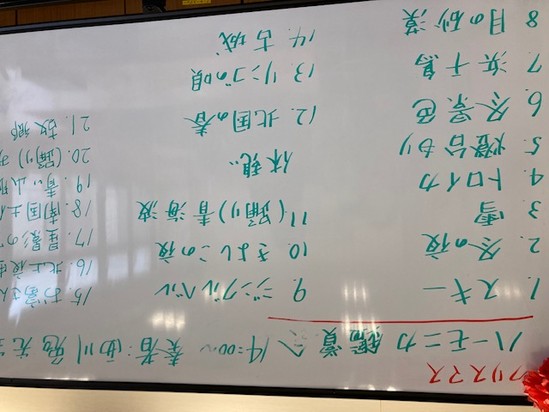 クリスマス
ハーモニカ鑑賞会 14:00〜 奏者:
1. スキー
2. 冬の夜
3 雪
4. トロイカ
5 燈台もり
6. 冬景色
7. 浜千鳥
8 月の砂漠
9. ジングルベル
10. きよしこの夜
11 (踊り) 青海波
休憩
12. 北国の春
13 リンゴの唄
14. 古城
15. お富さん
16. 北上夜
17. 星影の
18. 南国土
19. 青い山
20. (踊り)
21. 故郷